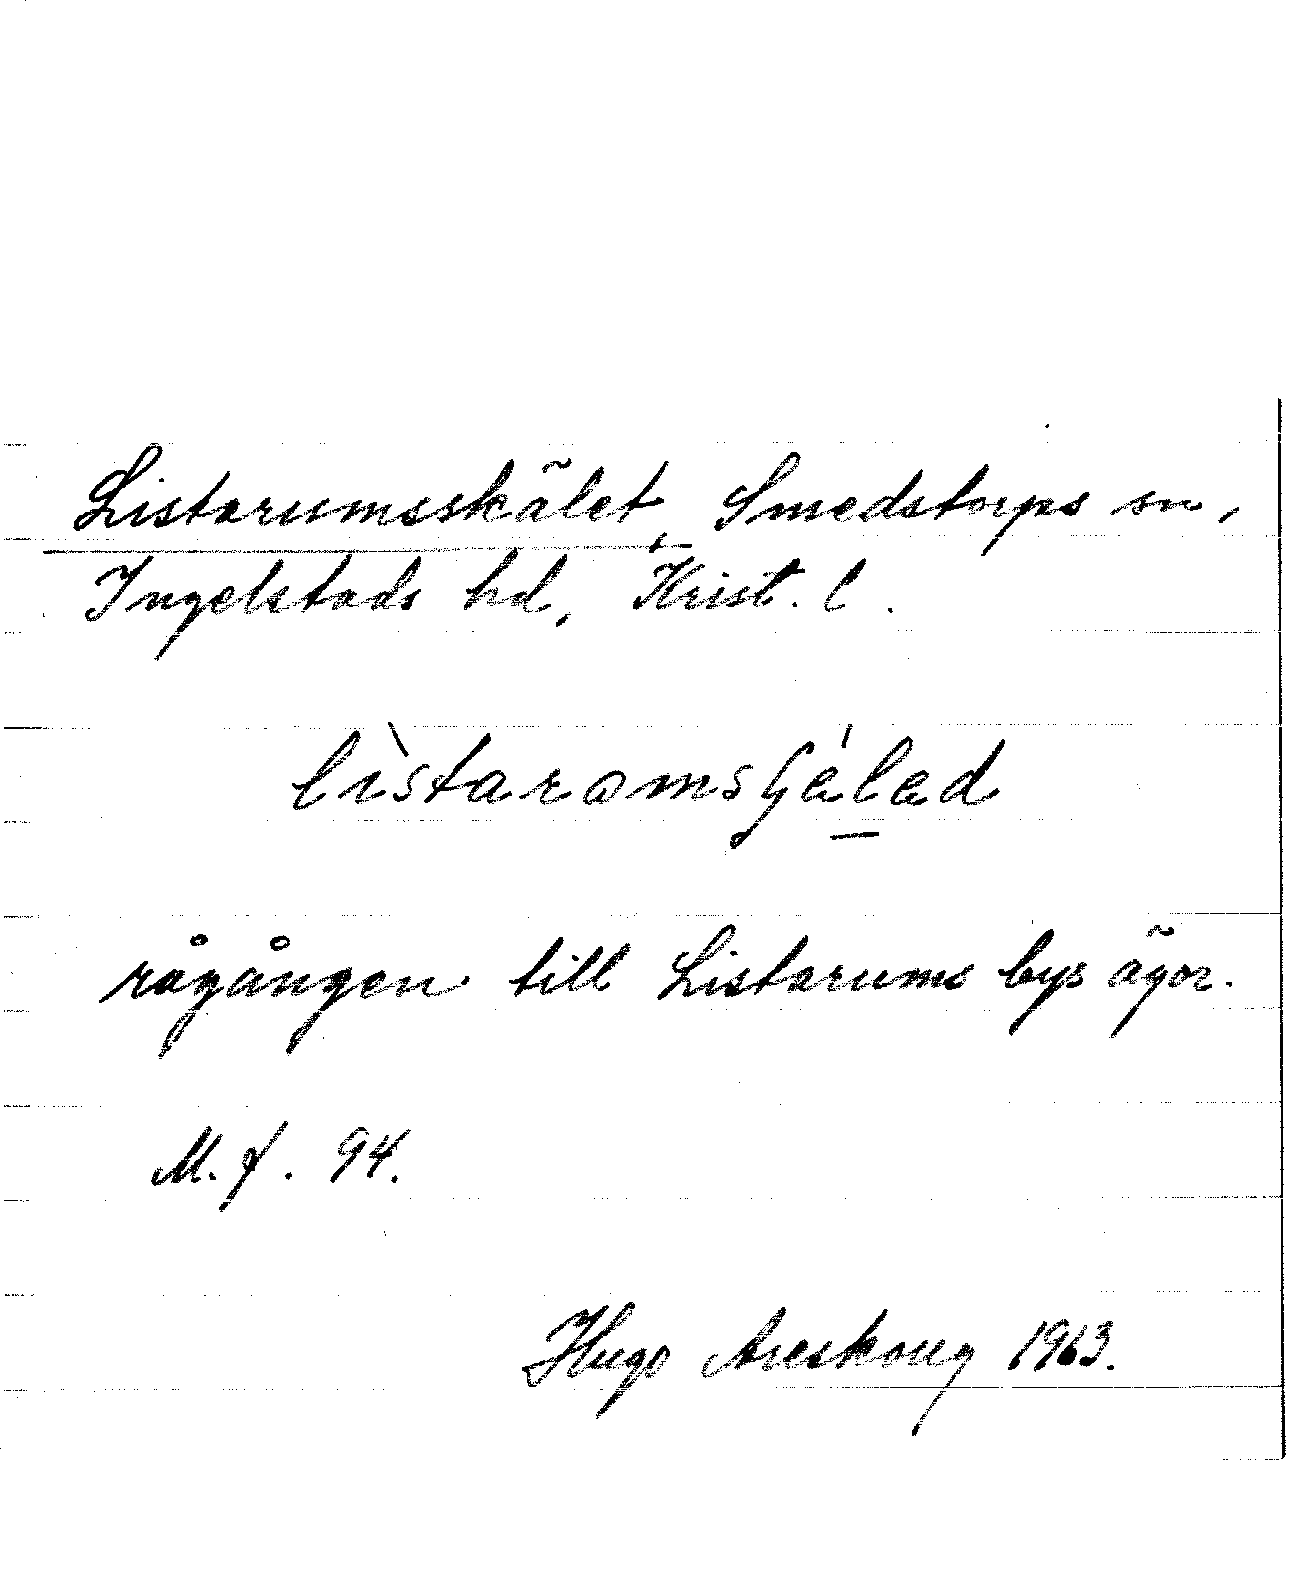 Listarumsskälet, Smedstorps sn,
Ingelstads hd, Krist. l.
lìstarømsʃǽlǝd
rågången till Listarums bys ägor.
M. f. 94.
Hugo Areskoug 1963.